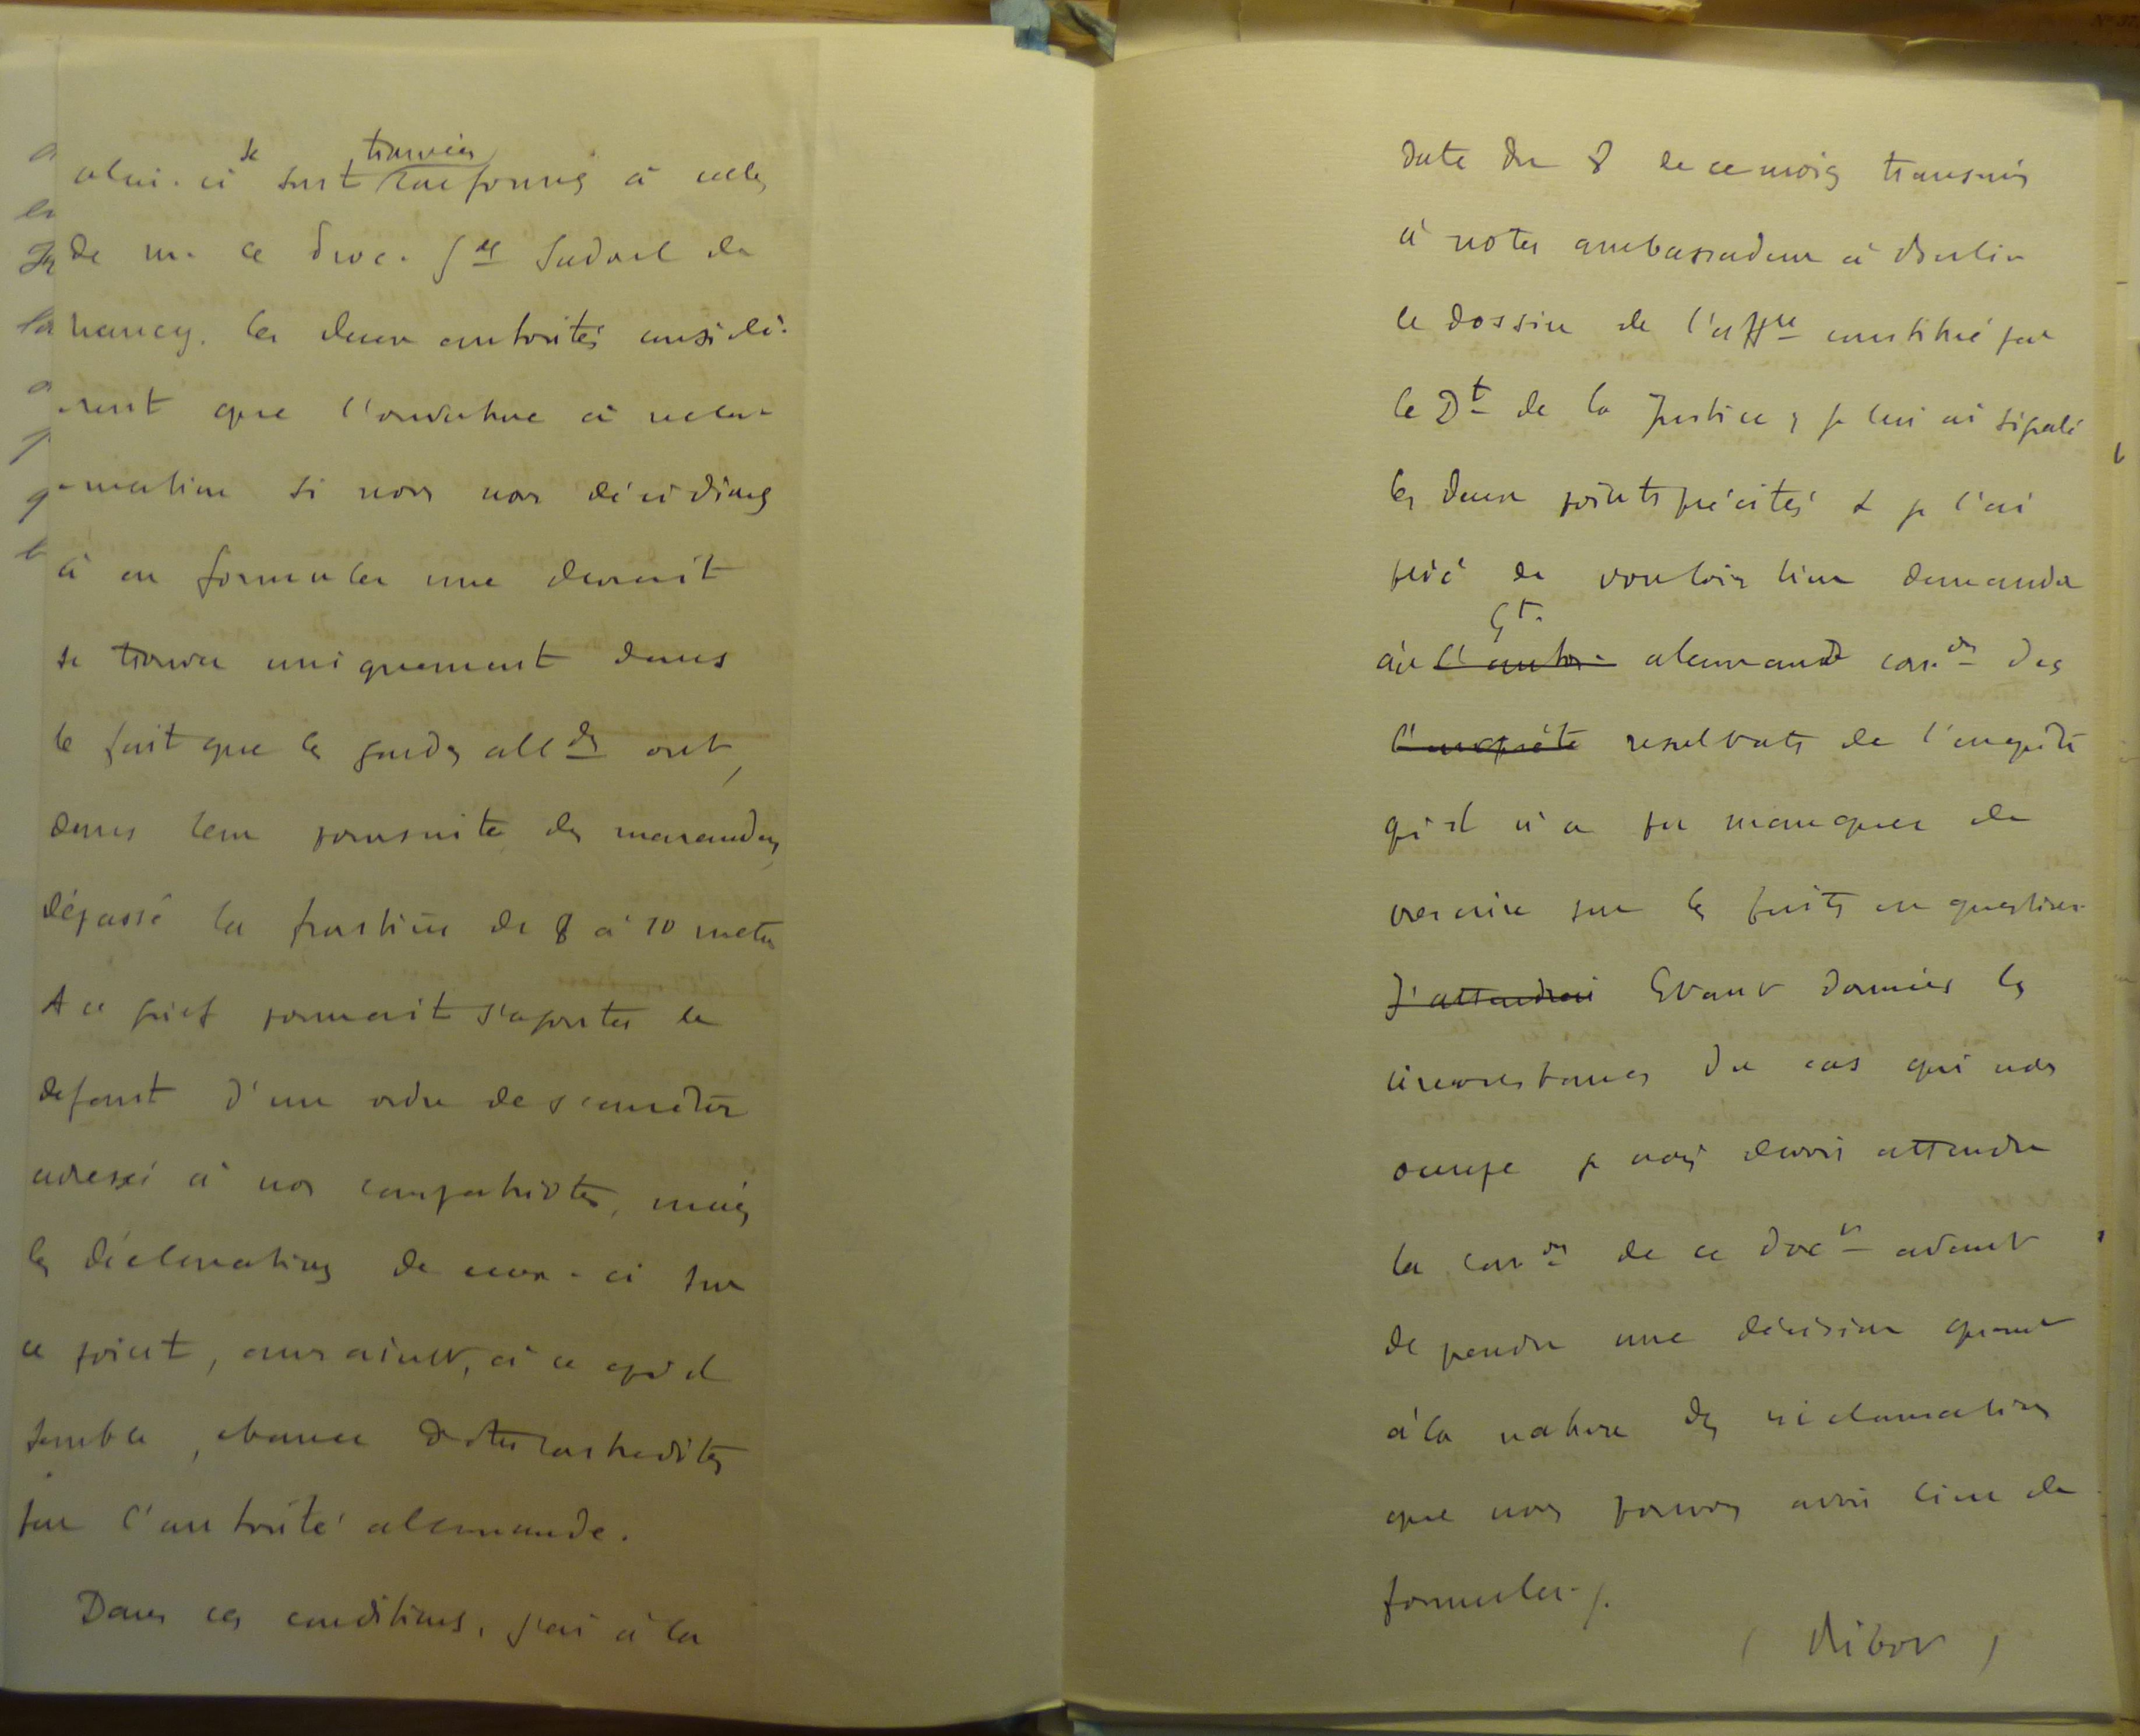 celui-ci se sont trouvées conformes à celles
de M. le Proc. Gal Sadoul de
Nancy. les deux autorités considè-
rent que l'ouverture à récla-
-mation si nous nous décidions
à en formuler une devrait
se trouver uniquement dans
le fait que les gardes allds ont,
dans leur poursuite des maraudeurs,
dépassé la frontière de 8 à 10 mètres
A ce grief pourrait s'ajouter le
défaut d'un ordre de s'arrêter
adressé à nos compatriotes, mais
les déclarations de ceux-ci sur
ce point, auraient, à ce qu'il
semble, chance d'être contredites
par l'autorité allemande.
Dans ces conditions, j'ai à la
date du 8 de ce mois transmis
à notre ambassadeur à Berlin
le dossier de l'affre constitué par
le Dt de la Justice, je lui ai signalé
les deux points précités & je l'ai
prié de vouloir bien demander
Gt.
au l'autor. allemand con.on des
l'enquête resultats de l'enquête
qu'il n'a pu manquer de
prescrire sur les faits en question
J'attendrai Etant données les
circonstances du cas qui nous
occupe je crois devoir attendre
la con.on de ce doct avant
de prendre une décision quant
à la nature des réclamations
que nous pouvons avoir lieu de
formuler /.
( Ribot )